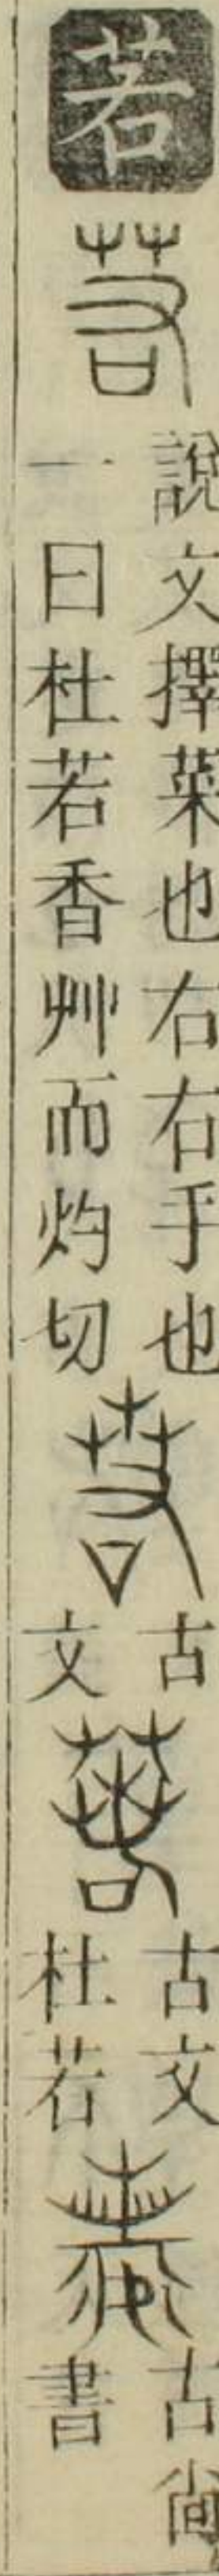 若
說文擇菜也右右手也
一曰杜若香艸而灼切
古
文
古文
杜若
古尚
書